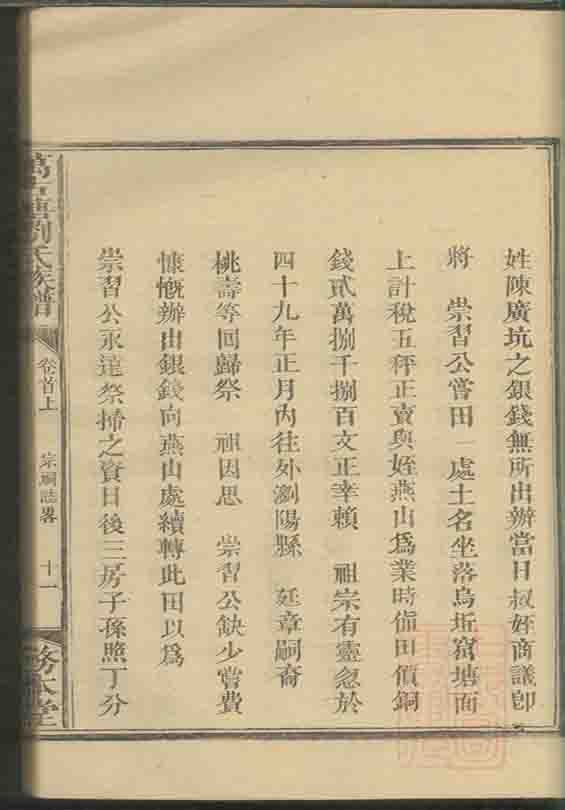 姓陳廣坑之銀錢無所出辦當日叔姪商議卽
將 崇習公嘗田一處土名坐落烏坵窩塘面
上計稅五秤正賣與姪燕山爲業時値田價銅
錢貳萬捌千捌百文正幸賴 祖宗有靈忽於
四十九年正月內往外瀏陽縣 廷章嗣裔
桃壽等回歸祭 祖因思 崇習公缺少嘗費
慷慨辦由銀錢向燕山處續轉此田以爲
崇習公永遠祭掃之資日後三房子孫照丁分
劉氏家譜
卷首上
宗祠誌畧
十一
務本堂